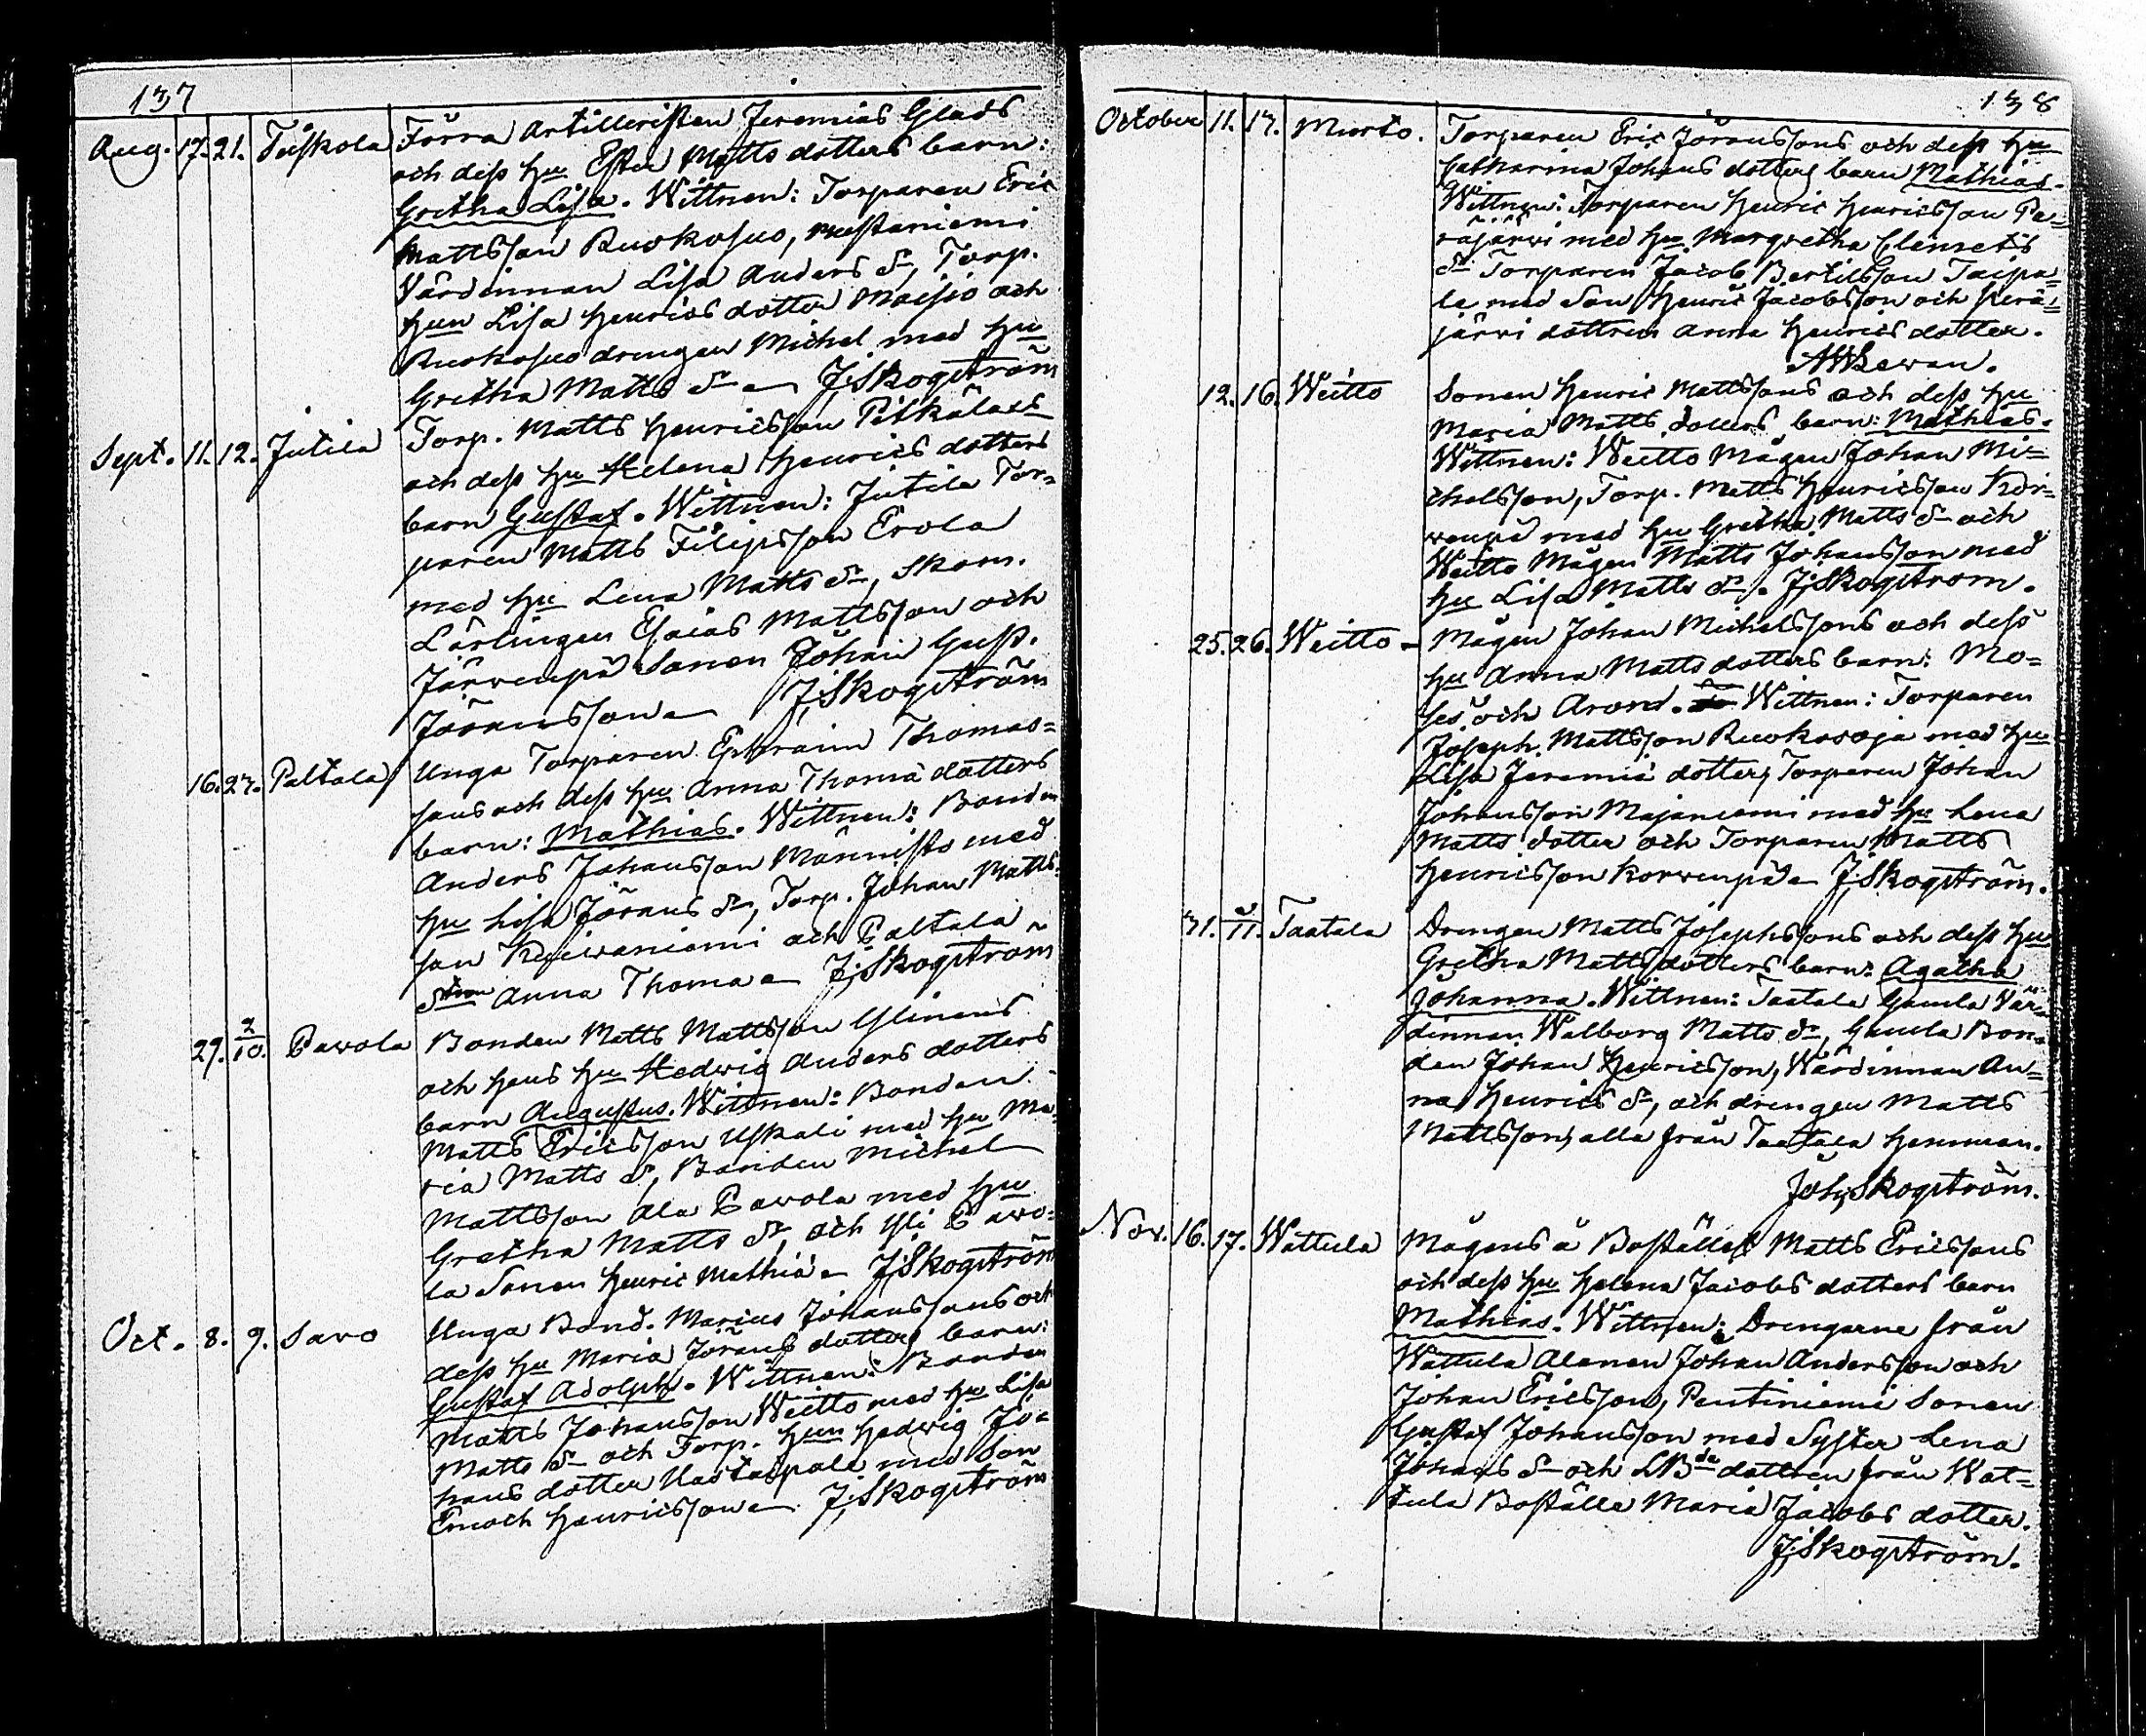 137
Aug. 17. 21. Tuiskola Förra Artilleristen Jeremias Glads
och dess hu Ester Matts dotters barn:
Gretha Lisa. Wittnen: Torparen Eric
Mattsson Ruokosuo, Mustaniemi
Värdinnan Lisa Anders dr, Torp.
hun Lisa Henrics dotter Maisio och
Ruokosuo drengen Michel med hu
Gretha Matts dr J. Skogström
Sept. 11. 12. Jutila Torp. Matts Henricsson Pitkälass
och dess hu Helena Henrics dotters
barn Gustaf. Wittnen: Jutila Tor-
paren Matts Filipsson Erola
med hu Lena Matts dr, Skom.
Lärlingen Esaias Mattsson och
Järvenpä Sonen Johan Gust.
Jöransson J. Skogström
16. 27. Paltala Unga Torparen Ephraim Thomas-
sons och dess hu Anna Thomæ dotters
barn: Mathias. Wittnen: Bonden
Anders Johansson Männisto med
hu Lisa Jörans dr, Torp. Johan Matts-
son Kuivaniemi och Paltala
dtren Anna Thomæ J. Skogström
29. 2/10. Pavola Bonden Matts Mattsson Ylinens
och hans hu Hedwig Anders dotters
barn Augustus. Wittnen: Bonden
Matts Ericsson Uskali med hu Ma-
ria Matts dr, Bonden Michel
Mattsson Ala Pavola med hu
Gretha Matts dr, och Yli Pavo-
la Sonen Henric Mathiæ J. Skogström
Oct. 8. 9. Savo Unga Bond. Marius Johanssons och
dess hu Maria Jörans dotters barn:
Gustaf Adolph. Wittnen: Bonden
Matts Johansson Weitto med hu Lisa
Matts dr och Torp. hun Hedwig Jo-
hans dotter Uastaipale med Son
Enoch Henricsson J. Skogström
138
October 11. 17. Murto. Torparen Eric Jöranssons och dess hu
Catharina Johans dotters barn Mathias.
Wittnen: Torparen Henric Henricsson Pe-
räjärvi med hu Margretha Clemets
dr Torparen Jacob Bertilsson Taipa-
le med Son Henric Jacobsson och Perä-
järvi dottren Anna Henrics dotter.
12. 16. Weitto Sonen Henric Mattssons och dess hu
Maria Matts dotters barn: Mathias.
Wittnen: Weitto Mågen Johan Mi-
chelsson, Torp. Matts Henricsson Kor-
wenpä med hu Gretha Matts dr och
Weitto Mågen Matts Johansson med
hu Lisa Matts dr. J. Skogström.
25. 26. Weitto Mågen Johan Michelssons och dess
hu Anna Matts dotters barn: Mo-
ses och Arond. Wittnen: Torparen
Joseph Mattsson Ruokosoja med hu
Lisa Jeremiæ dotter, Torparen Johan
Johansson Majaniemi med hu Lena
Matts dotter och Torparen Matts
Henricsson Korwenpä J. Skogström.
31. 2/11. Taatala Drengen Matts Josephssons och dess hu
Gretha Matts dotters barn: Agatha
Johanna. Wittnen: Taatala Gamla Vär-
dinnan Walborg Matts dr, Gamla Bon-
den Johan Henricsson, Wärdinnan An-
na Henrics dr, och drengen Matts
Mattsson, alla från Taatala hemman.
Joh. Skogström.
Nov. 16. 17. Wattula Mågens å Bostället Matts Ericssons
och dess hu Helena Jacobs dotters barn
Mathias. Wittnen: Drengarne från
Wattula Alanen Johan Andersson och
Johan Ericsson, Pentiniemi Sonen
Gustaf Johansson med Syster Lena
Johans dr och LBde dottren från Wat-
tula Boställe Maria Jacobs dotter.
J. Skogström.